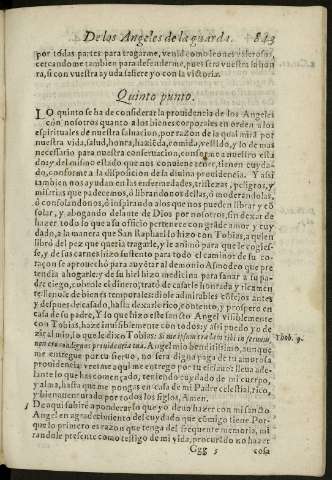 De los Angeles de la guarda. 843
por todas partes para tragarme, venid como leones valerosos,
cercandome tambien para defenderme, pues sera vuestra la hon
ra, si con vuestra ayuda saliere yo con la victoria.
Quinto punto.
LO quinto se ha de considerar la prouidencia de los Angeles
con nosotros quanto a los bienes corporales en orden a los
espirituales de nuestra saluacion, por razon de la qual mirã por
nuestra vida, salud, honra, haziẽda, comida, vestido, y lo de mas
necessario para nuestra conseruacion, conforme a nuestro esta
do: y del mismo estado que nos conuiene tener, tienen cuyda-
do, conforme a la disposicion de la diuina prouidencia. Y assi
tambien nos ayudan en las enfermedades, tristezas, peligros, y
miserias que padecemos, ò librandonos dellas, ò moderandolas,
ò consolandonos, ò inspirando a los que nos pueden librar y cõ
solar, y abogando delante de Dios por nosotros, sin dexar de
hazer todo lo que a su officio pertenece con grãde amor y cuy
dado, a la manera que San Raphael lo hizo con Tobias, a quien
librò del pez que queria tragarle, y le animò para que le cogies-
se, y de sus carnes hizo sustento para todo el camino: de su co-
raçon se aprouechò para auyẽtar al demonio Asmodeo que pre
tendia ahogarle: y de su hiel hizo medicina para sanar a su pa-
dre ciego, cobrole el dinero, tratò de casarle honrada y ricamẽ
te llenole de bienes temporales: diole admirables cõsejos antes
y despues de casado, hasta dexarle rico, cõtento, y prospero en
casa de su padre, Y lo que hizo este sancto Angel visiblemente
con Tobias, haze inuisiblemente con todos: y assi puedo yo de
zir al mio, lo que le dixo Tobias: Si me ipsum tradam tibi in seruum
non ero condignus prouidentiæ tuæ. Angel mio benditissimo, aunque
me entregue por tu sieruo, no sera digna paga de tu amorosa
prouidencia: vesme aqui me entrego por tu esclauo: lleua ade-
lante lo que has començado, teniendo cuydado de mi cuerpo,
y alma, hasta que me pongas en casa de mi Padre celestial, rico,
y bienauenturado por todos los siglos, Amen.
Thob. 9.
De aqui subirè a ponderar lo que yo deuo hazer con mi sancto
Angel en agradecimiento del cuydado que cõmigo tiene. Por-
que lo primero es razon que tenga del frequente memoria, mi
randole presente como testigo de mi vida, procurãdo no hazer
Ggg 5 cosa